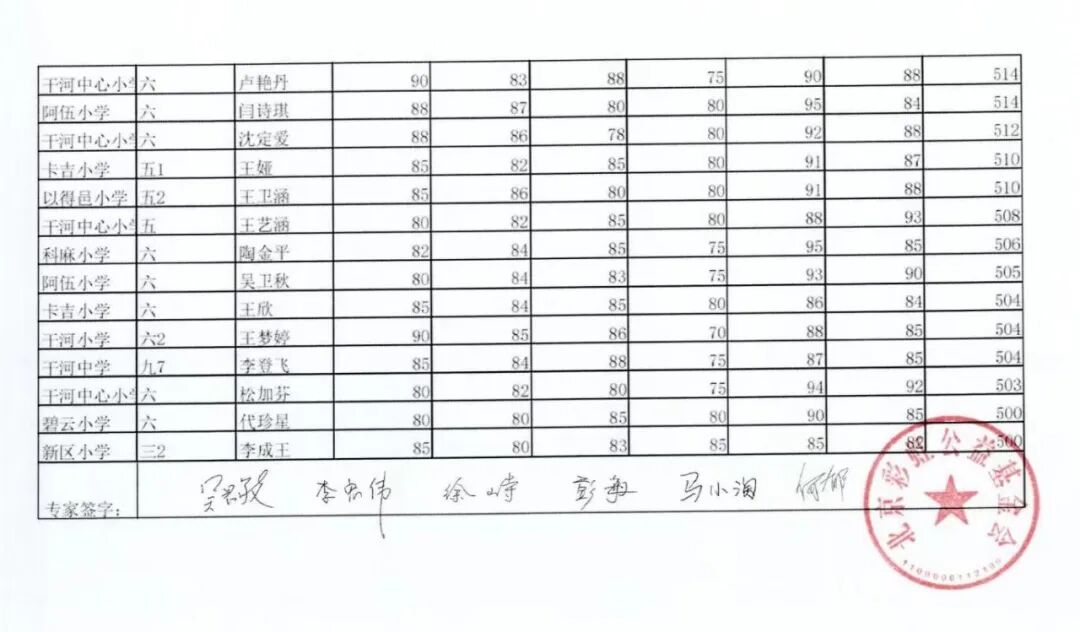 干河中心小学 六 卢艳丹 90 83 88 75 90 88 514
阿伍小学 六 闫诗琪 88 87 80 80 95 84 514
干河中心小学 六 沈定爱 88 86 78 80 92 88 512
卡吉小学 五1 王娅 85 82 85 80 91 87 510
以得邑小学 五2 王卫涵 85 86 80 80 91 88 510
干河中心小学 五 王艺涵 80 82 85 80 88 93 508
科麻小学 六 陶金平 82 84 85 75 95 85 506
阿伍小学 六 吴卫秋 80 84 83 75 93 90 505
卡吉小学 六 王欣 85 84 85 80 86 84 504
干河小学 六2 王梦婷 90 85 86 70 88 85 504
干河中学 九7 李登飞 85 84 88 75 87 85 504
干河中心小学 六 松加芬 80 82 80 75 94 92 503
碧云小学 六 代珍星 80 80 85 80 90 85 500
新区小学 三2 李成王 85 80 83 85 85 82 500
专家签字： 徐峙 彭敏 马小淘 何郁
北京彩虹公益基金会